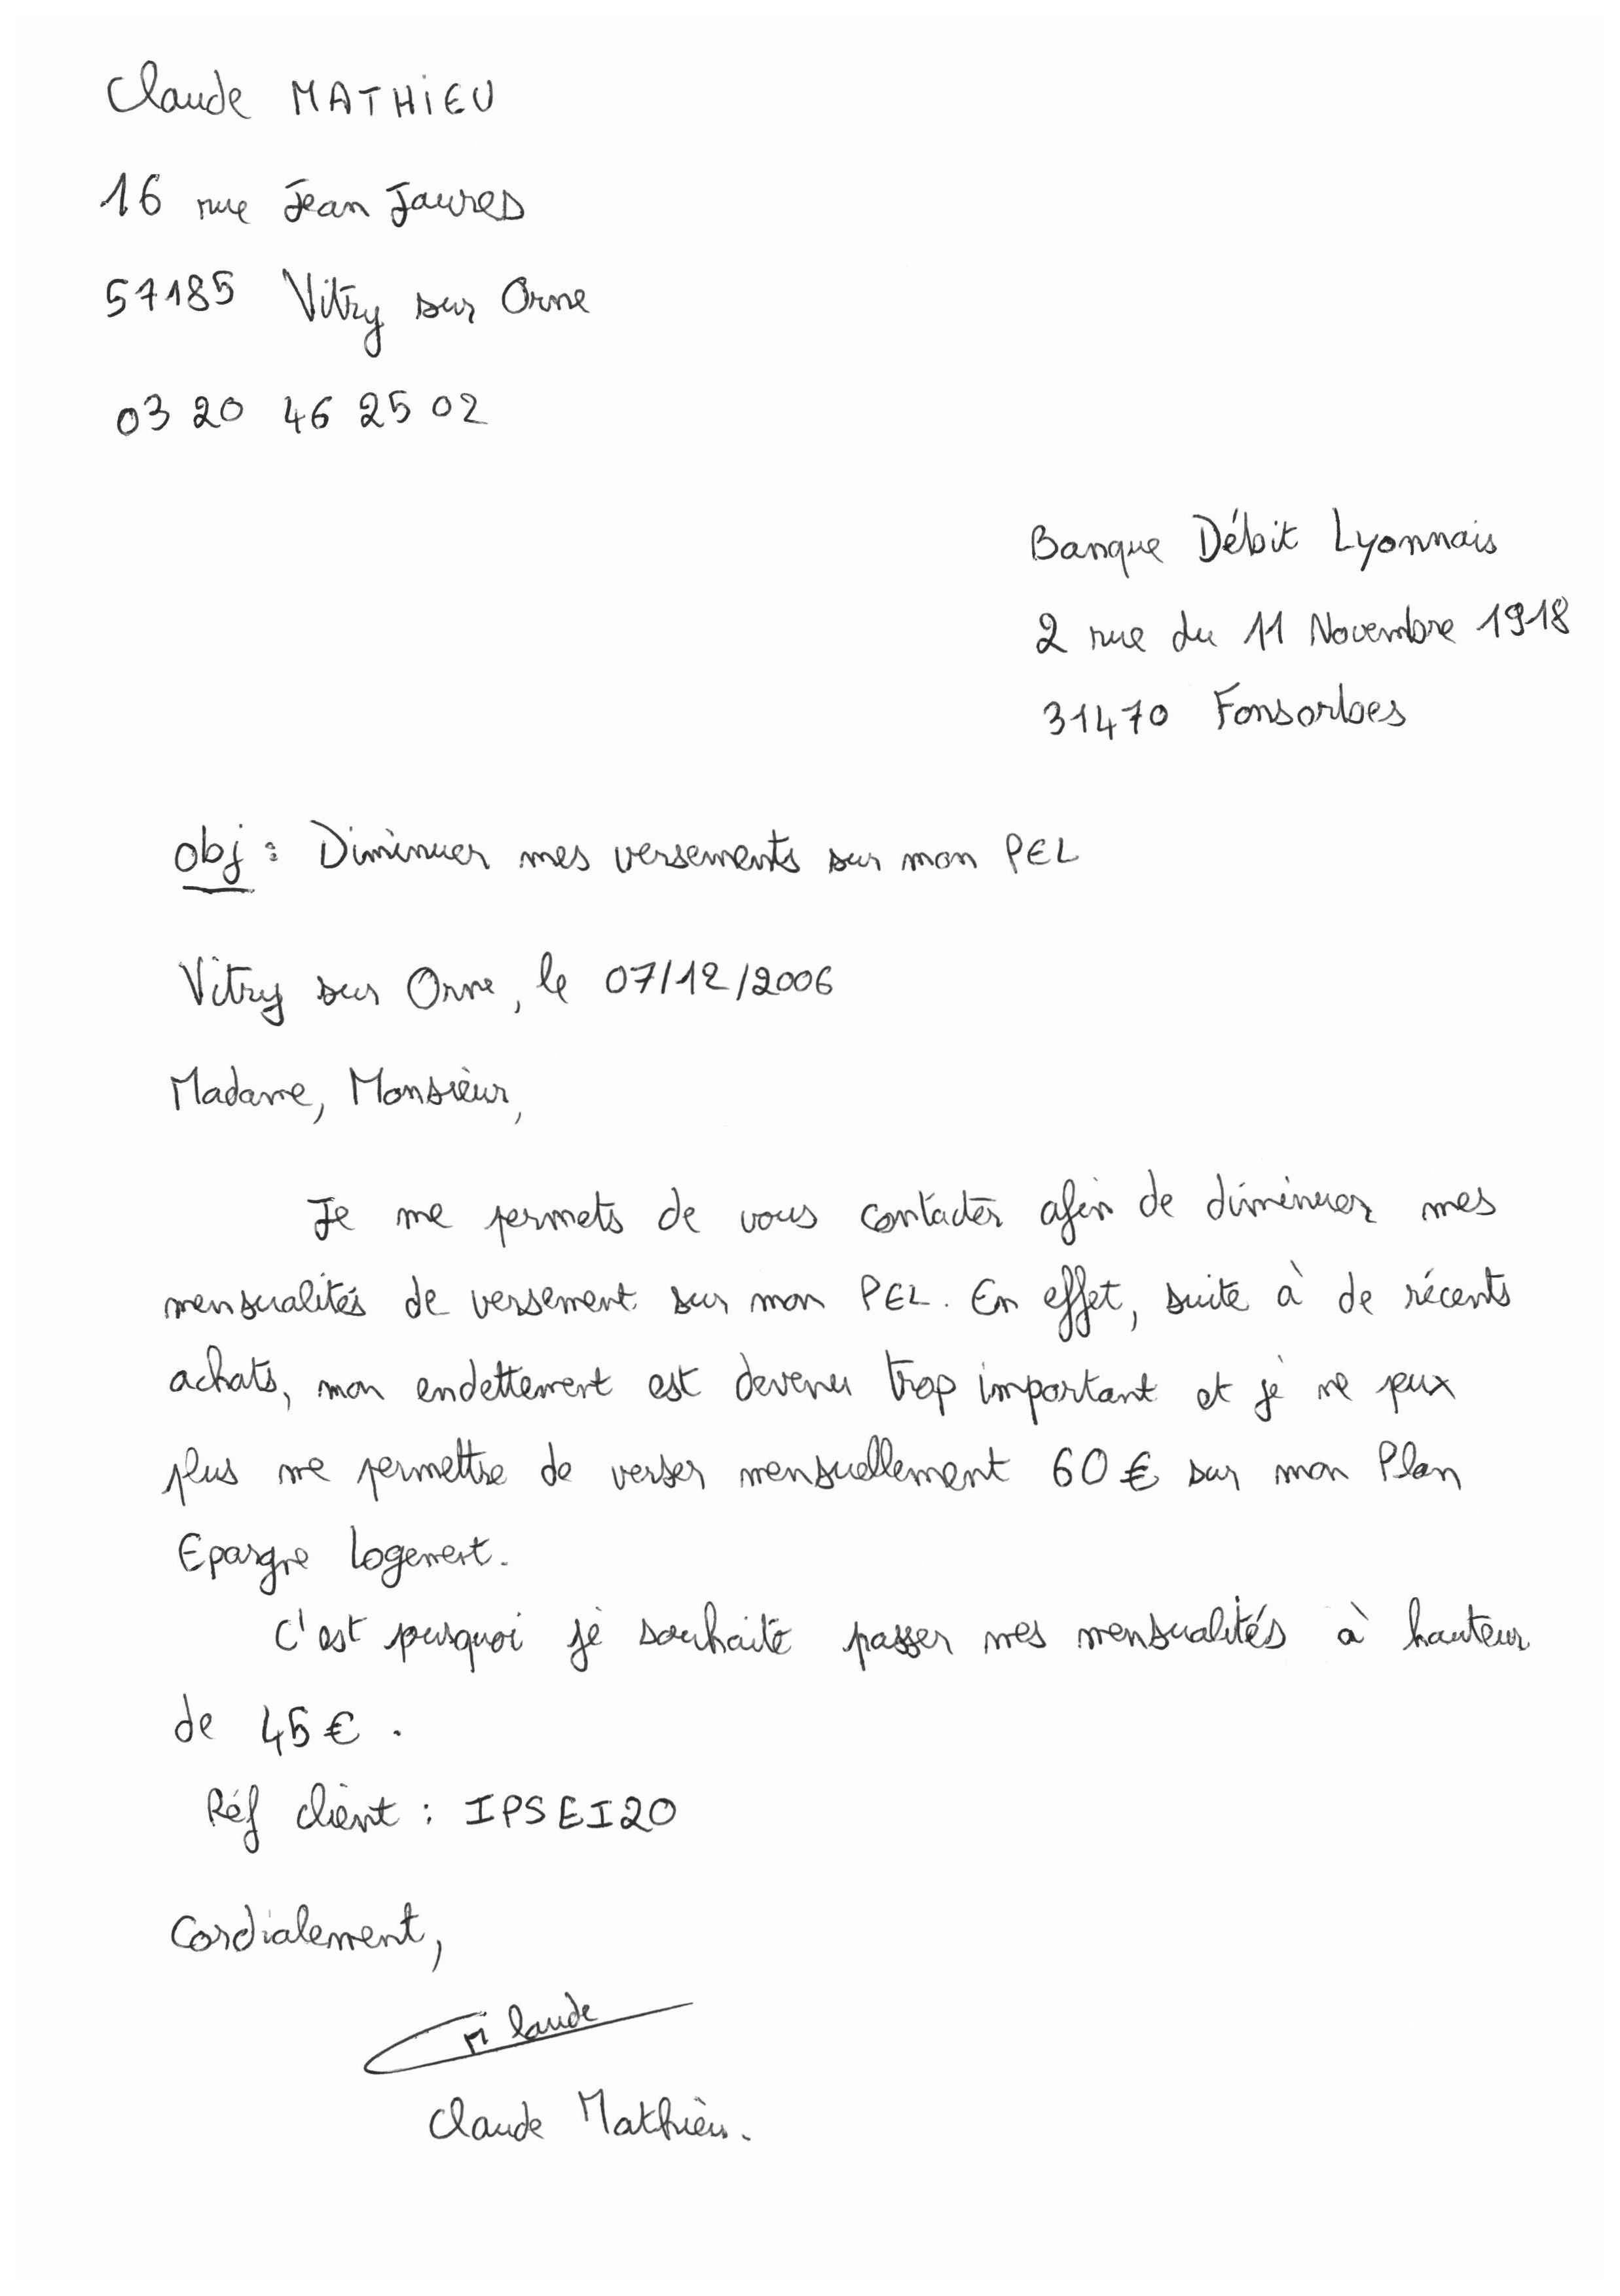 Claude MATHIEU
16 rue Jean Jaures
57185 Vitry sur Orne
03 20 46 25 02
Banque Débit Lyonnais
2 rue du 11 Novembre 1918
31470 Fonsorbes
obj : Diminuer mes versements sur mon PEL
Vitry sur Orne, le 07/12/2006
Madame, Monsieur,
Je me permets de vous contacter afin de diminuer mes
mensualités de versement sur mon PEL. En effet, suite à de récents
achats, mon endettement est devenu trop important et je ne peux
plus me permettre de verser mensuellement 60 € sur mon Plan
Epargne Logement.
C'est pourquoi je souhaite passer mes mensualités à hauteur
de 45 € .
Réf client : IPSEI20
Cordialement,
M Claude
Claude Mathieu.